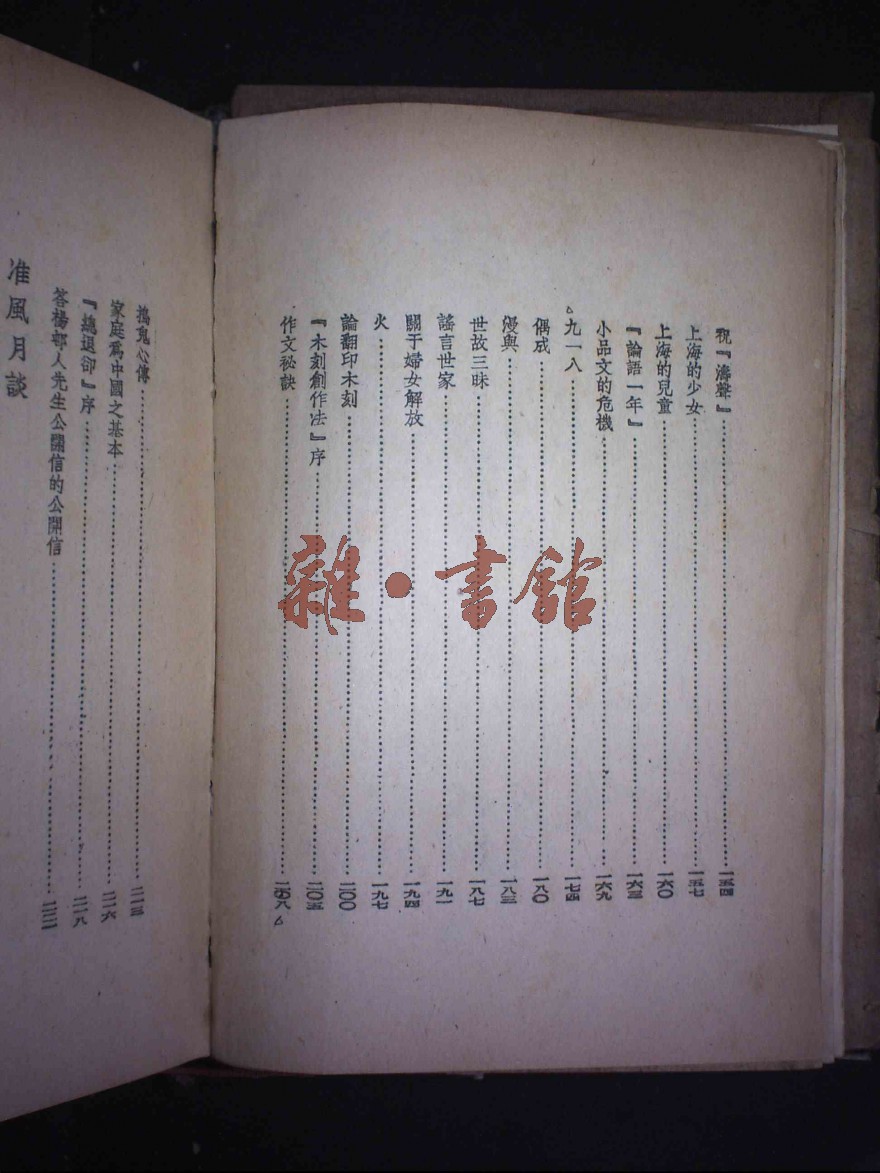 祝『濤聲』⋯⋯一五四
上海的少女⋯⋯一五七
上海的兒童⋯⋯一六〇
『論語一年』⋯⋯一六三
小品文的危機⋯⋯一六九
九一八⋯⋯一七四
偶成⋯⋯一八〇
漫與⋯⋯一八三
世故三昧⋯⋯一八七
謠言世家⋯⋯一九一
關于婦女解放⋯⋯一九四
火⋯⋯一九七
論翻印木刻⋯⋯二〇〇
『木刻創作法』序⋯⋯二〇五
作文秘訣⋯⋯二〇八
搗鬼心傳⋯⋯二一三
家庭爲中國之基本⋯⋯二一六
『總退卻』序⋯⋯二一八
答楊邨人先生公開信的公開信⋯⋯二二一
准風月談
雜·書館